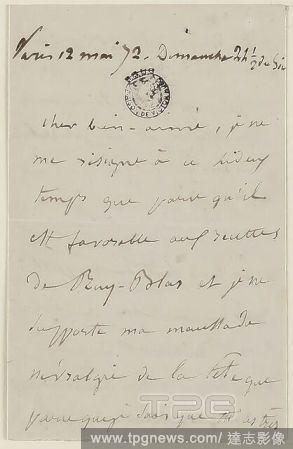 Paris 12 mai 72. Dimanche 2h ½ du Soir
Cher bien-aimé, je ne
me résigne à ce hideux
temps que parce qu'il
est favorable aux recettes
de Ruy-Blas et je ne
supporte ma maussade
névralgie de la tête que
parce que je sais que tu as très
TPG
www.tpgnews.com / 達志影像